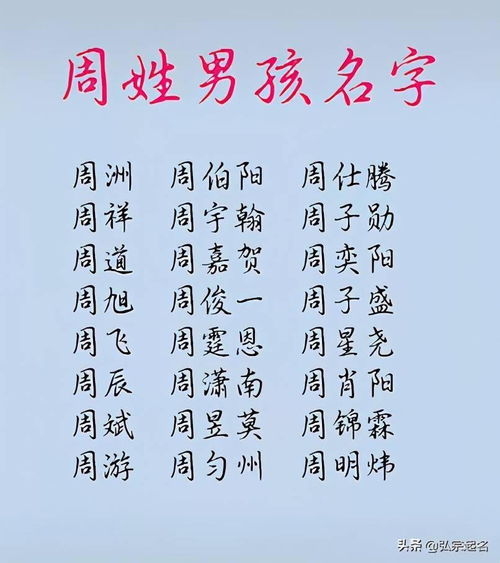 周姓男孩名字
周洲 周伯阳 周仕腾
周祥 周宇翰 周子勋
周道 周嘉贺 周奕阳
周旭 周俊一 周子盛
周飞 周霆恩 周星尧
周辰 周潇南 周肖阳
周斌 周昱莫 周锦霖
周游 周匀州 周明炜
头条 @弘宗起名